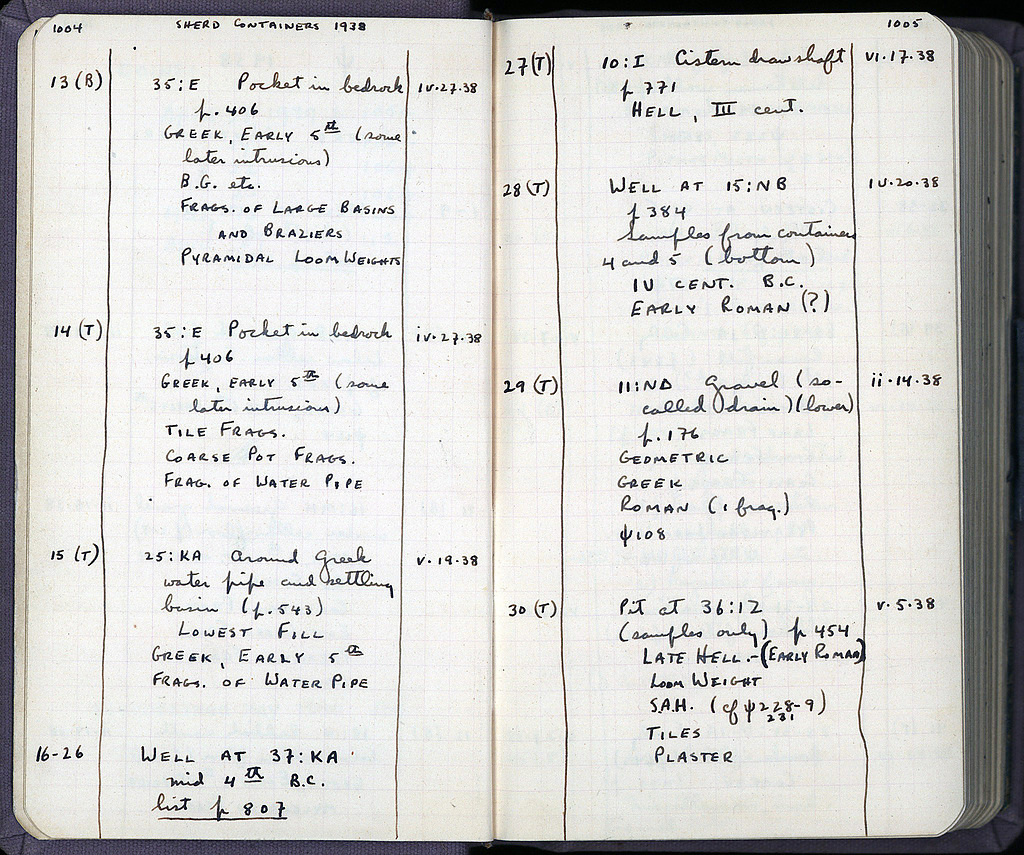 1004
SHERD CONTAINERS 1938
13 (B) 35:E Pocket in bedrock IV·27·38
p. 406
GREEK, EARLY 5th (some
later intrusions)
B.G. etc.
FRAGS. OF LARGE BASINS
AND BRAZIERS
PYRAMIDAL LOOM WEIGHTS
14 (T) 35:E Pocket in bedrock iv·27·38
p 406
GREEK, EARLY 5th (some
later intrusions)
TILE FRAGS.
COARSE POT FRAGS.
FRAG. OF WATER PIPE
15 (T) 25:KA around Greek V·19·38
water pipe and settling
basin (p. 543)
LOWEST FILL
GREEK, EARLY 5th
FRAGS. OF WATER PIPE
16-26 WELL AT 37:KA
mid 4th B.C.
list p 807
1005
27 (T) 10:I Cistern draw shaft VI·17·38
p 771
HELL, III cent.
28 (T) WELL AT 15:NB IV·20·38
p 384
Samples from containers
4 and 5 (bottom)
IV CENT. B.C.
EARLY ROMAN (?)
29 (T) 11:ND gravel (so- ii·14·38
called drain) (lower)
p. 176
GEOMETRIC
GREEK
ROMAN (1 frag.)
ψ108
30 (T) Pit at 36:12 V·5·38
(samples only) p 454
LATE HELL.-(EARLY ROMAN)
LOOM WEIGHT
S.A.H. (cf ψ228-9)
231
TILES
PLASTER